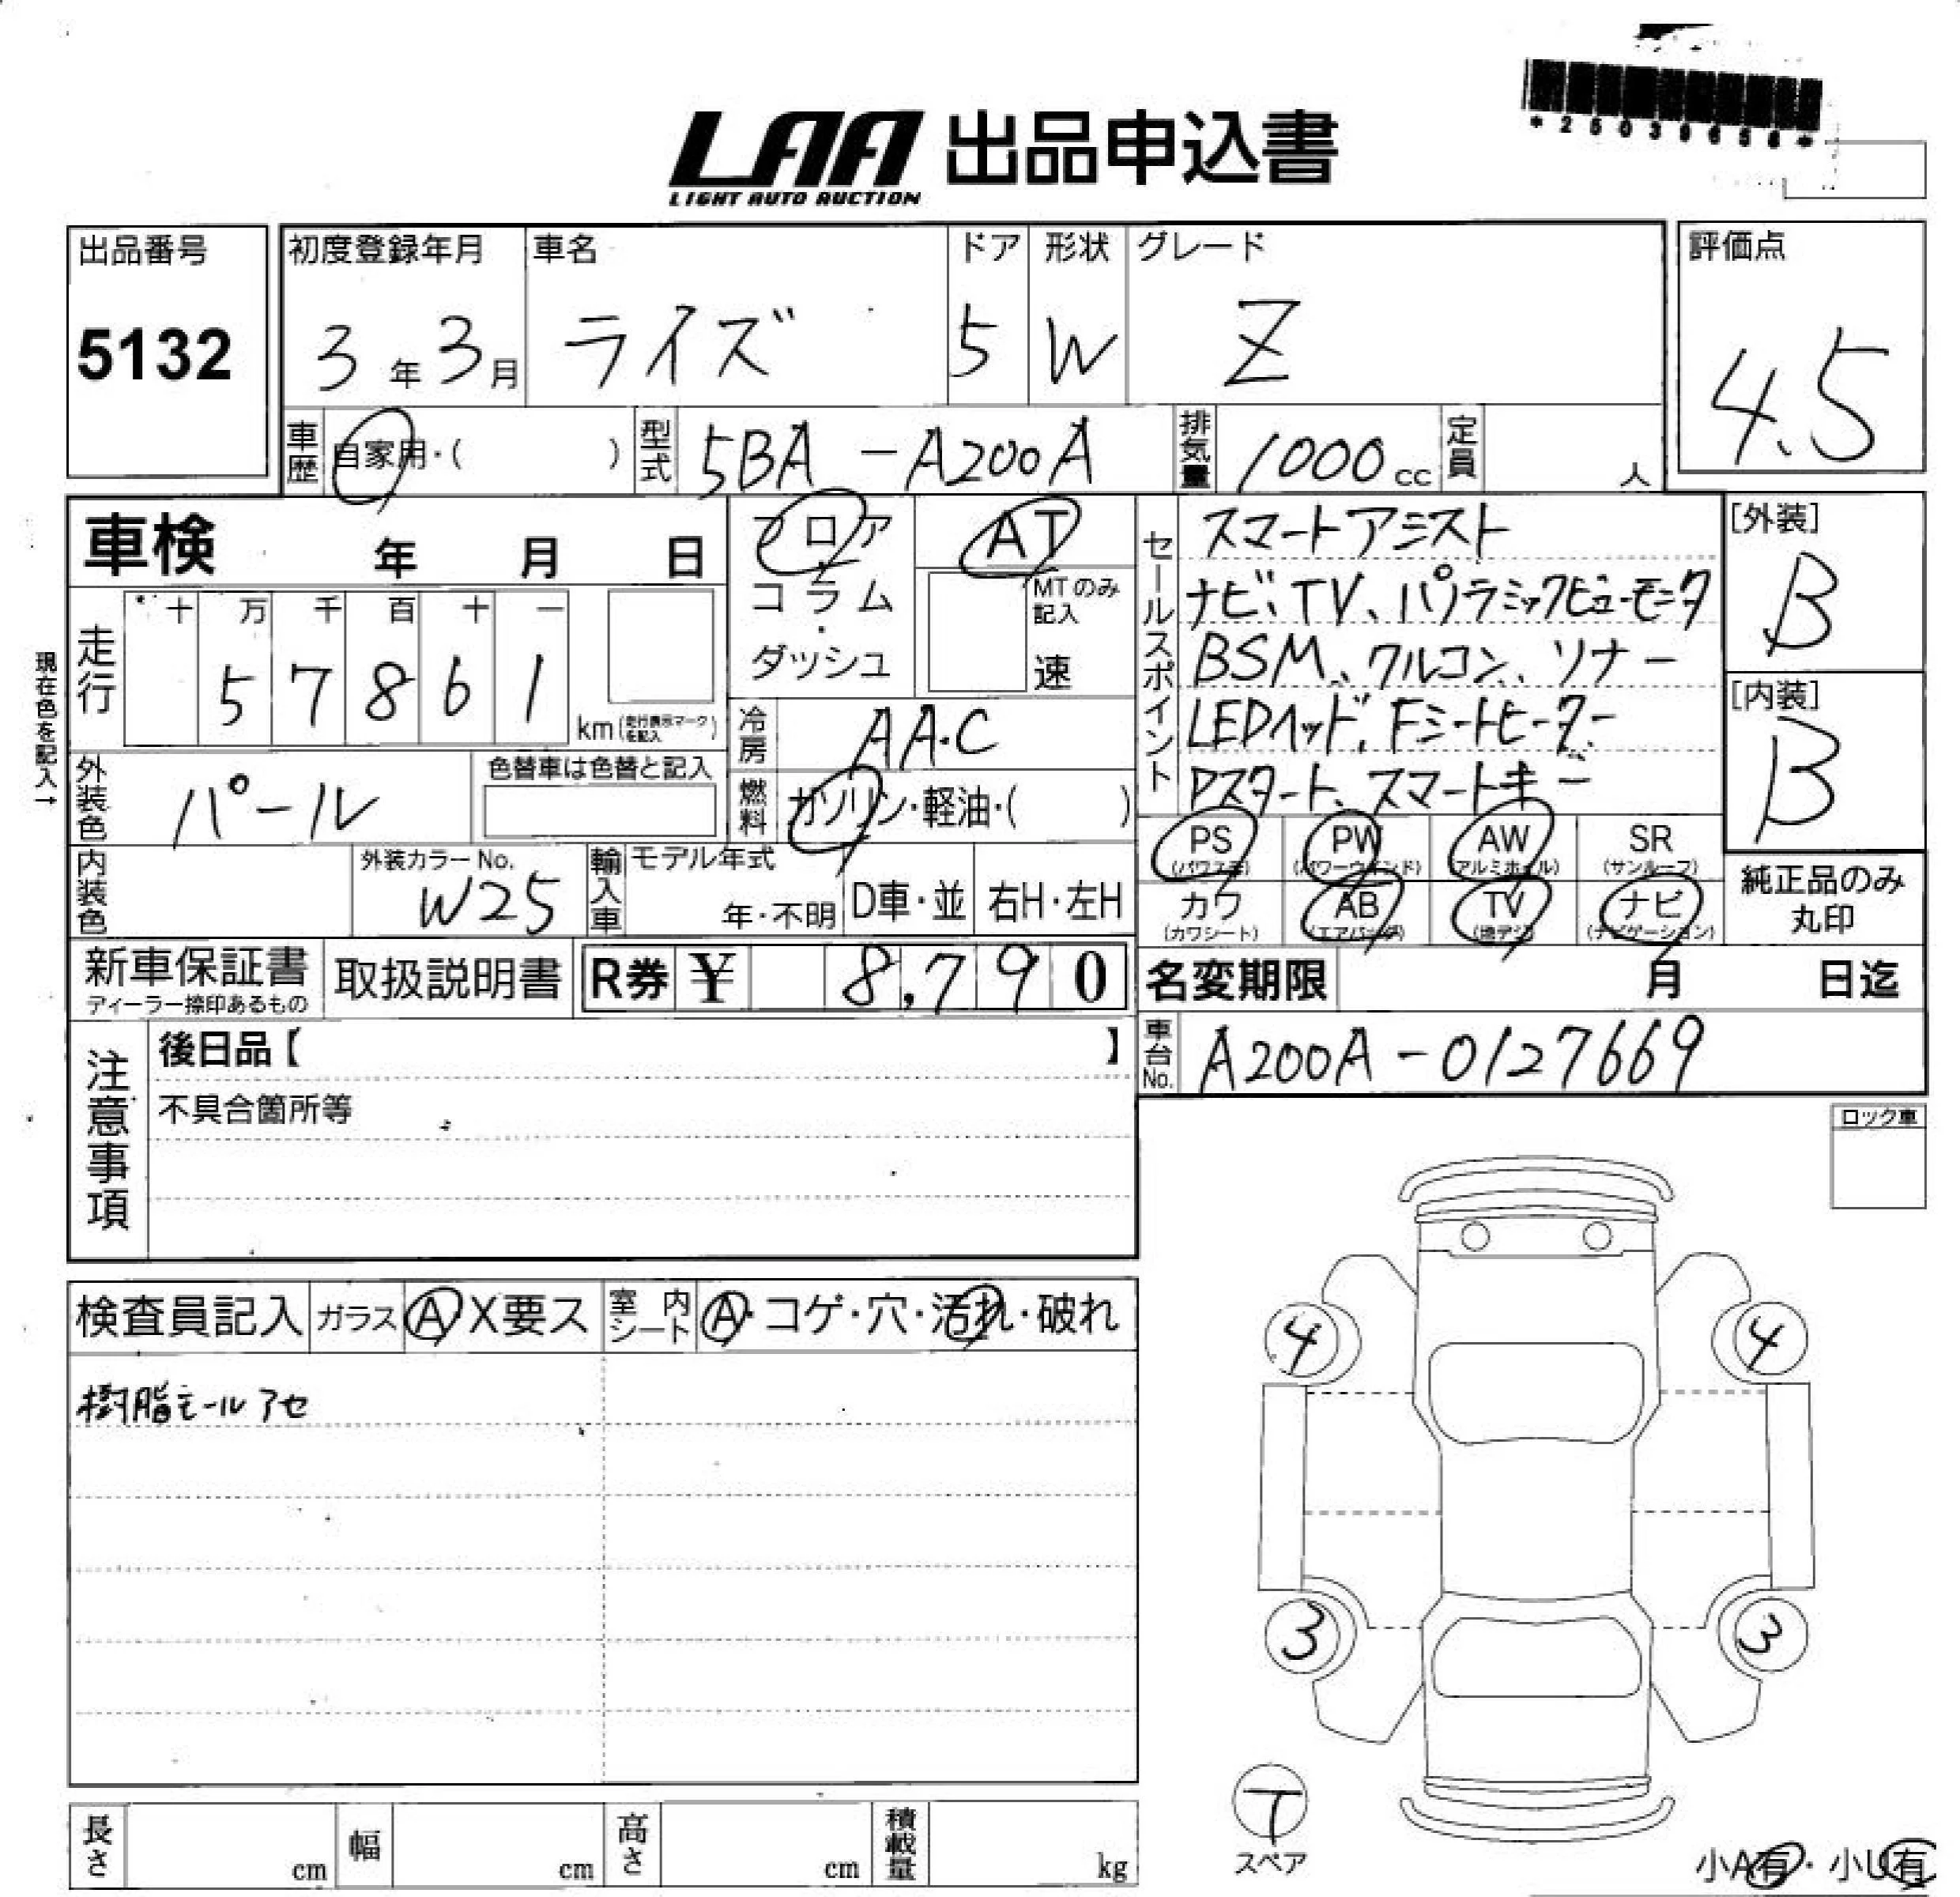 *25039658*
LAA 出品申込書
LIGHT AUTO AUCTION
出品番号 初度登録年月 車名 ドア 形状 グレード 評価点
5132 3年3月 ライズ 5 W Z 4.5
車歴 自家用・( ) 型式 5BA-A200A 排気量 1000cc 定員 人
車検 年 月 日 フロア AT セールスポイント スマートアシスト [外装]
コラム・ MTのみ記入 ナビ、TV、パノラミックビューモニタ B
走行 十 万 千 百 十 一
57861 km(走行表示マークを記入) ダッシュ 速 BSM、クルコン、ソナー
現在色を記入→
冷房 AA.C LEDヘッド、Fシートヒーター [内装]
外装色 パール 色替車は色替と記入 燃料 ガソリン・軽油・( ) Pスタート、スマートキー B
PS PW AW SR
(パワステ) (パワーウインド) (アルミホイル) (サンルーフ)
内装色 外装カラーNo. W25 輸入車 モデル年式 年・不明 D車・並 右H・左H カワ AB TV ナビ 純正品のみ
(カワシート) (エアバッグ) (地デジ) (ナビゲーション) 丸印
新車保証書 取扱説明書 R券 ¥ 8,790 名変期限 月 日迄
ディーラー捺印あるもの
注意事項 後日品【 】 車台No. A200A-0127669
不具合箇所等
ロック車
検査員記入 ガラス A・X要ス 室内シート A・コゲ・穴・汚れ・破れ
4 4
樹脂モールアセ
3 3
T
スペア
長さ cm 幅 cm 高さ cm 積載量 kg
小A有・小U有